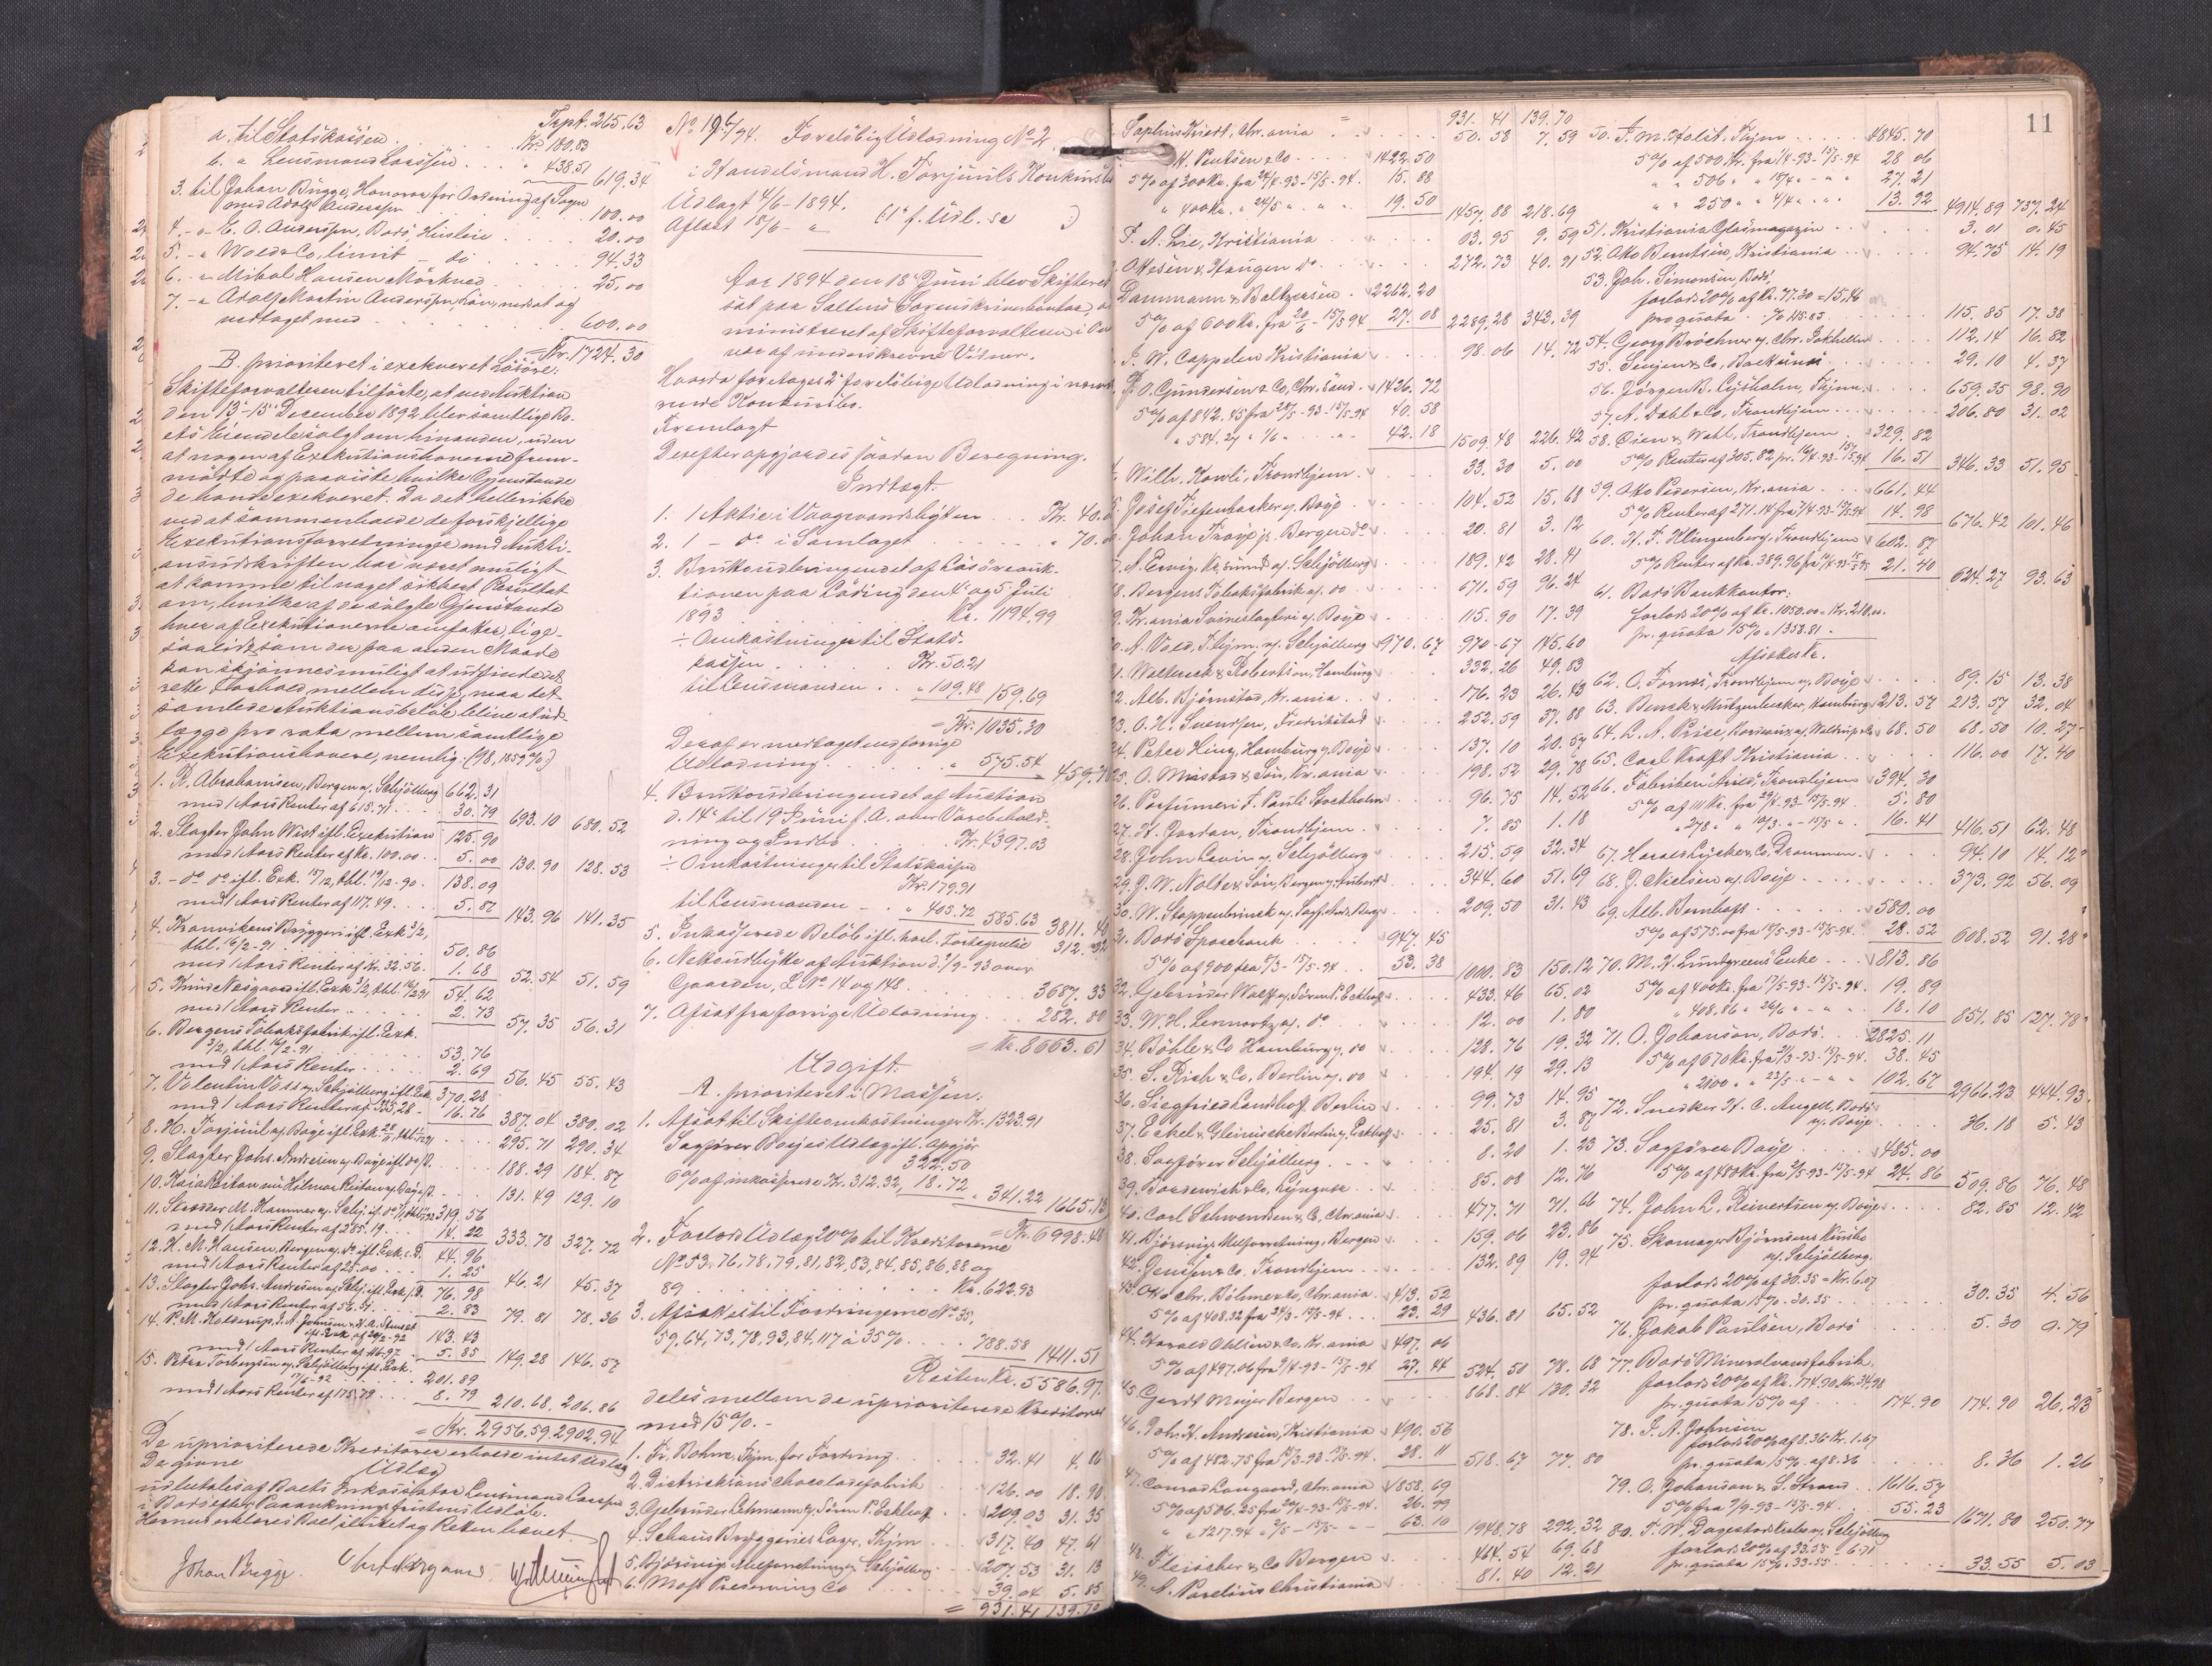 Trpt. 265.63
a. til Statskassen . . . Kr. 180.83
b. " Lensmand Laassen . . " 438.51 619.34
3. til Johan Bügge, Honorar for Ordning af Sagen
med Adolf Anderssen . . . 100.00
4. - " E. O. Anderssen, Bodö, Husleie . . . 20.00
5. - " Wold & Co, limit - do . . . 94.33
6. - " Mikal Hansen Mörkved . . . 25,00
7. - " Adolf Martin Anderssen, Lön, nedsat og
vedtaget med . . . 600.00
= Kr. 1724.30
B. prioriteret i exekveret Lösöre:
Skifteforvalteren tilförte, at ved Auktion
den 13-15 December 1892 blev samtlige Bo-
ets Eiendele solgt om hinanden, uden
at nogen af Exekutionshaverne frem-
mödte og paaviste hvilke Gjenstande
de havde exekveret. Da det heller ikke
ved at sammenholde de forskjellige
Exekutionsforretninger med Aukti-
onsudskriften har været muligt
at komme til noget sikkert Resultat
om, hvilke af de solgte Gjenstande
hver af Exekutionerne omfatter, lige-
saalidt som der paa anden Maade
kan skjönnes muligt at udfinde det
rette Forhold mellem disse, maa det
samlede Auktionsbelöb blive at ud-
lægge pro rata mellem samtlige
Exekutionshavere, nemlig: (98,1859 %)
1. R. Abrahamsen, Bergen v. Schjölberg 662.31
med 1 Aars Renter af 615.71 . . 30.79 693.10 680.52
2. Slagter John West ifl. Exekution 125.90
med 1 Aars Renter af Kr. 100.00 . . 5.00 130.90 128.53
3. - do do ifl. Exk. 15/12, thl. 19/12-90. 138.09
med 1 Aars Renter af 117.49 . . . 5.87 143.96 141.35
4. Kronvikens Bryggeri ifl. Exk 3/2,
thl. 16/2-91 . . . 50.86
med 1 Aars Renter af Kr. 32.56. 1.68 52.54 51.59
5. Knud Næsgaard ifl. Exk 3/2, thl. 16/2 91 54.62
med 1 Aars Renter . . . 2.73 57.35 56.31
6. Bergens Tobaksfabrik ifl. Exk.
3/2, thl. 16/2-91 . . . 53.76
med 1 Aars Renter . . . 2.69 56.45 55.43
7. Valentin Voss v. Schjölberg ifl. Exk. 370.28
med 1 Aars Renter af 335,28 - 16.76 387.04 380.02
8. H. Torjuul v. Boije ifl. Exk. 295.71 290.34
9. Slagter Johs. Andresen v. Boije ifl. do D. 188.29 184.87
10. Kaia Reitan v. Hilmar Reitan v. Boije D. 131.49 129.10
11. Skræder M. Hammer v. Schj. 319.56
med 1 Aars Renter af 285.19 . . . 14.22 333.78 327.72
12. H. M. Hansen, Bergen v. do ifl. Exk. s. D. 44.96
med 1 Aars Renter af 25.00 . . . 1.25 46.21 45.37
13. Slagter Johs. Andresen v. Schj. ifl. Exk. s. D. 76.98
med 1 Aars Renter af 56.51 . . . 2.83 79.81 78.36
14. P. M. Kolderup, J. A. Johnsen & H. A. Stenset
ifl. Exk. af 20/2-92 143.43
med 1 Aars Renter af 116.97 . 5.85 149.28 146.57
15. Petra Torbergsen v. Schjölberg ifl. Exk.
7/6-92 . . . 201.89
med 1 Aars Renter af 175.78 . . . 8.79 210.68. 206.86
= Kr. 2956.59. 2902.94
De uprioriterede Kreditorer erholde intet Udlæg
De givne Udlæg
udbetales af Boets Inkasator Lensmand Laassen
i Bodö efter Paaankningsfristens Udlöb.
Hermed erklæres Boet sluttet og Retten hævet
Johan Bügge.
No 196/94. Forelöbig Udlodning No 2
i Handelsmand H. Torjuuls Konkursbo
Udlagt 4/6-1894. (1ste f. Udl. se )
Afläst 18/6 - "
Aar 1894 den 18de Juni blev Skifteret
sat paa Saltens Sorenskriverkontor, ad-
ministreret af Skifteforvalteren i Over-
vær af underskrevne Vidner.
Hvorda foretages 2den forelöbige Udlodning i nævn-
rende Konkursbo.
Fremlagt
Derefter opgjordes saadan Beregning.
Indtægt.
1. 1 Aktie i Vaagevandshytten . . . Kr. 40.
2. 1 - do i Samlaget . . . " 70.
3. Bruttoudbringendet af Lösöreauk-
tionen paa Löding den 4de og 5te Juli
1893 . . . Kr. 1194.99
÷ Omkostninger til Stats-
kassen . . . Kr. 50.21
til Lensmanden . . " 109.48 159.69
= Kr. 1035.30
Deraf er medtaget ved forrige
Udlodning . . . " 575.54 459.76
4. Bruttoudbringendet af Auction
d. 14de til 19de Juni f. A. over Varebehold-
ning og Indbo . . . Kr. 4397.03
÷ Omkostninger til Statskassen
Kr. 179.91
til Lensmanden - . " 405.72 585.63 3811.40
5. Inkasserede Belöb ifl. hosl. Fortegnelse 312.32
6. Nettoudbytte af Auktion d. 2/9-93 over
Gaarden, L. No 14 og 148 . . . 3687.33
7. Afsat fra forrige Udlodning . . . 282.80
= Kr. 8663.61
Udgift.
A. prioriteret i Massen:
1. Afsat til Skifteomkostninger Kr. 1323.91
Sagförer Boijes Udlæg ifl. Opgjör
322.50
6 % af inkasserede Kr. 312.32, 18.72 " 341.22 1665.13
= Kr. 6998.48
2. Forlods Udlæg 20 % til Kreditorerne
No 53, 76, 78, 79, 81, 82, 83, 84, 85, 86, 88 og
89 . . . Kr. 622.93
3. Afsættes til Fordringerne No 35,
59, 64, 73, 78, 93, 84, 117 a 35 % . . . 788.58 1411.51
Resten Kr. 5586.97
deles mellem de uprioriterede Kreditorer
med 15 %. -
1. Fr. Bohne, Thjm. for Fordring . . . 32.41 4.86
2. Distriktions Chocoladefabrik . . . 126.00 18.90
3. Gebrüder Lehmann v. Sören P. Eckhoff . . 209.03 31.35
4. Schous Bryggeries Lager, Thjm . . . 317.40 47.61
5. Björsviks Melforretning v. Schjölberg . . 207.53 31.13
6. Moss Preserving Co . . . 39.04 5.85
= 931.41 139.70
11
931. 41 139.70
Sophus Hviedt, Chr.ania . . . 50.58 7.59
H. Pentsen & Co . . . 1422.50
5 % af 300 Kr. fra 24/4-93-15/5-94. 15.88
" 400 Kr. " 24/5 " . " . 19.50 1457.88 218.69
T. A. Lie, Kristiania . . . 63.95 9.59
Ottesen & Haugen do . . . 272.73 40.91
Dammann & Baltzersen . . 2262.20
5 % af 600 Kr. fra 20/6-15/5 94 27.08 2289.28 343.39
J. W. Cappelen Kristiania . . . 98.06 14.72
J. O. Gundersen & Co, Chr.sand . . 1426.72
5 % af 842.45 fra 28/5-93-15/5-94 40.58
" 584.27 " 1/6 " . . . 42.18 1509.48 226.42
Wilh. Howli, Trondhjem . . . 33.30 5.00
Josef Tiefenbacker v. Boije . . . 104.52 15.68
Johan Troye jr. Bergen do . . . 20.81 3.12
A. Enwig. Kr.sund v. Schjölberg . . 189.42 28.41
8. Bergens Tobaksfabrik v. do . . . 671.59 96.24
9. Kr.ania Svineslagteri v. Boije . . 115.90 17.39
0. A. Vold, T.hjm. v. Schjölberg 970.67 970.67 145.60
21. Woltereck & Robertson, Hamburg . 332.26 49.83
22. Alb. Bjørnstad, Kr.ania . . . 176.23 26.43
23. O. H. Svendsen, Fredrikstad . . 252.59 37.88
24. Peter Hinz, Hamburg v. Boije . . 137.10 20.57
25. O. Mustad & Sön, Kr.ania . . . 198.52 29.78
26. Parfumeri F. Pauli Stockholm . . 96.75 14.52
27. H. Jordan, Trondhjem . . . 7.85 1.18
28. John Levin v. Schjölberg . . . 215.59 32.34
29. G. W. Nolte & Sön, Bergen v. Aubert . 344.60 51.69
30. W. Stoppenbrinck v. Sagf. . . 209.50 31.43
31. Bodö Sparebank . . . 947.45
5 % af 900 fra 8/3-15/5-94 . . 53.38 1000.83 150.12
32. Gebrüder Wolff v. Sören P. Eckhoff . . 433.46 65.02
33. W. H. Lennartz v. do . . . 12.00 1.80
34. Böhle & Co Hamburg v. do . . 128.76 19.32
35. S. Rich & Co. Berlin v. do . . 194.19 29.13
36. Siegfried Landhoff Berlin . . 99.73 14.95
37. Eckel & Gleinicke Berlin v. Eckhoff . 25.81 3.87
38. Sagförer Schjölberg . . . 8.20 1.23
39. Bordewich & Co, Lyngvær . . . 85.08 12.76
40. Carl Schwensen & Co, Chr.ania . 477.71 71.66
41. Björsvigs Melforretning, Bergen . 159.06 23.86
42. Jenssen & Co. Trondhjem . . . 132.89 19.94
43. Otto Chr. Böhmer & Co, Chr.ania . 413.52
5 % af 408.32 fra 24/3-15/5-94 . . 23.29 436.81 65.52
44. Harald Ohlsen & Co. Kr.ania 497.06
5 % af 497.06 fra 9/4-93-15/5-94 27.44 524.50 78.68
45. Gerdt Meijer Bergen . . . 868.84 130.32
46. Joh. H. Andresen, Kristiania 490.56
5 % af 482.75 fra 15/3-93-15/5-94. 28.11 518.67 77.80
47. Conrad Langaard, Chr.ania 1858.69
5 % af 506.25 fra 20/4-93-15/5-94. 26.99
" " 1217.94 " 2/5 - 15/5 - " - 63.10 1948.78 292.32
48. Fleischer & Co Bergen . . . 464.54 69.68
49. N. Parelius Christiania . . . 81.40 12.21
50. J. M. Holst. Thjm . . . 4845.70
5 % af 500 Kr. fra 1/4-93-15/5-94 28 06
" " 506 " " 15/4 " - " " 27.21
" " 250 " " 4/4 " . " . 13.92 4914.89 737.24
51. Kristiania Glasmagazin . . . 3.01 0.45
52. Otto Berntsen, Kristiania . . . 94.75 14.19
53. Joh. Simonsen, Bodö,
forlods 20 % af Kr. 77.30 = 15,46
pro quota . . % 115.85 . . . 115.85 17.38
54. Georg Bröchner v. Chr. Tokheller 112.14 16.82
55. Jenzen & Co, Backesund . . . 29.10 4.37
56. Jörgen B. Lysholm, Thjm . . . 659.35 98.90
57. A. Dahl & Co, Trondhjem . . . 206.80 31.02
58. Oien & Wahl, Trondhjem . . . 329.82
5 % Renter af 305.82 pr. 16/4-93-15/5-94 16.51 346.33 51.95
59. Otto Pedersen, Kr.ania . . . 661.44
5 % Renter af 271.14 fra 7/4-93-15/5-94 14.98 676.42 101.46
60. H. F. Klingenberg, Trondhjem 602.87
5 % Renter af Kr. 389.96 fra 10/4-93-15/5-94 21.40 624.27 93.63
61. Bodö Bankkontor:
forlods 20 % af Kr. 1050.00 = Kr. 210.00.
pr. quota 15 % " 1358.81 -
Afsættes.
62. O. Fornæs, Trondhjem v. Boije . . . 89.15 13.38
63. Benck & Mützenbecker, Hamburg 213.57 213.57 32.04
64. L. A. Price, Bordeaux v. 68.50 68.50 10.27
65. Carl Krafft Kristiania . . . 116.00 17.40
66. Fabriken Arild, Trondhjem 394.30
5 % af 111 Kr. fra 29/4-93-15/5-94 . 5.80
" 278 " " 10/3 " - 15/5 " . 16.41 416.51 62.48
67. Harald Lycke & Co, Drammen . . 94.10 14.12
68. J. Nielsen v. Boije . . . 373.92 56.09
69. Alb. Bernhoft . . . 580.00
5 % af 575.00 fra 17/5-93-15/5-94. 28.52 608.52 91.28
70. M. H. Lundgreens Enke . . . 813.86
5 % af 400 Kr. fra 17/5-93-15/5-94. 19.89
" 408.86 " 26/6 " - " " 18.10 851.85 127.78
71. O. Johanson, Bodö . . . 2825.11
5 % af 670 Kr. fra 21/3-93-15/5-94. 38.45
" 2100 " " 23/5 " - " " 102.67 2966.23 444.93
72. Snedker H. C. Angell, Bodö
v. Boije . . . 36.18 5.43
73. Sagförer Boije . . . 485.00
5 % af 480 Kr. fra 2/5-93-15/5-94 24.86 509.86 76.48
74. John L. Reinertsen v. Boije . . . 82.85 12.42
75. Skomager Björnsens Konkursbo
v. Schjölberg,
forlods 20 % af 30.35 = Kr. 6.07
pr. quota 15 % . 30.35 . . . 30.35 4.56
76. Jakob Paulsen, Bodö . . . 5.30 0.79
77. Bodö Mineralvandfabrik,
forlods 20 % af Kr. 174.90. Kr. 34.98
pr. quota 15 % af . . 174.90 174.90 26.23
78. J. A. Johnsen
forlods 20 % af 8.36 Kr. 1.67
pr. quota 15 % af 8.36 . . . 8.36 1.26
79. O. Johanson & S. Strand . 1616.57
5 % fra 7/9-93-15/5-94 . . 55.23 1671.80 250.77
80. T. W. Dagestads Konkursbo v. Schjölberg
forlods 20 % af 33.55 - 6.71
pr. quota 15 % . 33.55 . . . 33.55 5.03